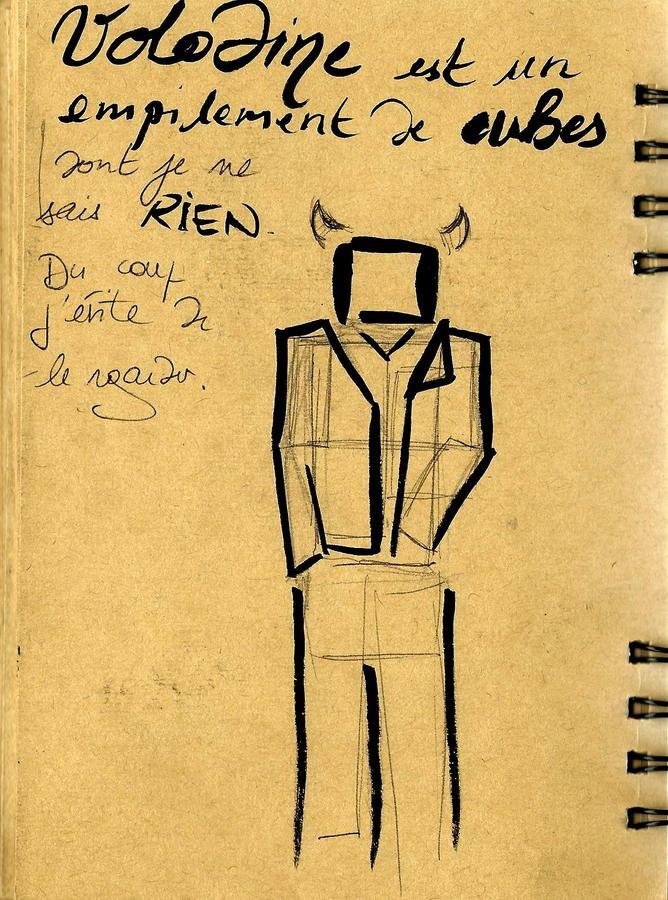 Volodine est un
empilement de cubes
dont je ne
sais RIEN.
Du coup
j'évite de
le regarder.